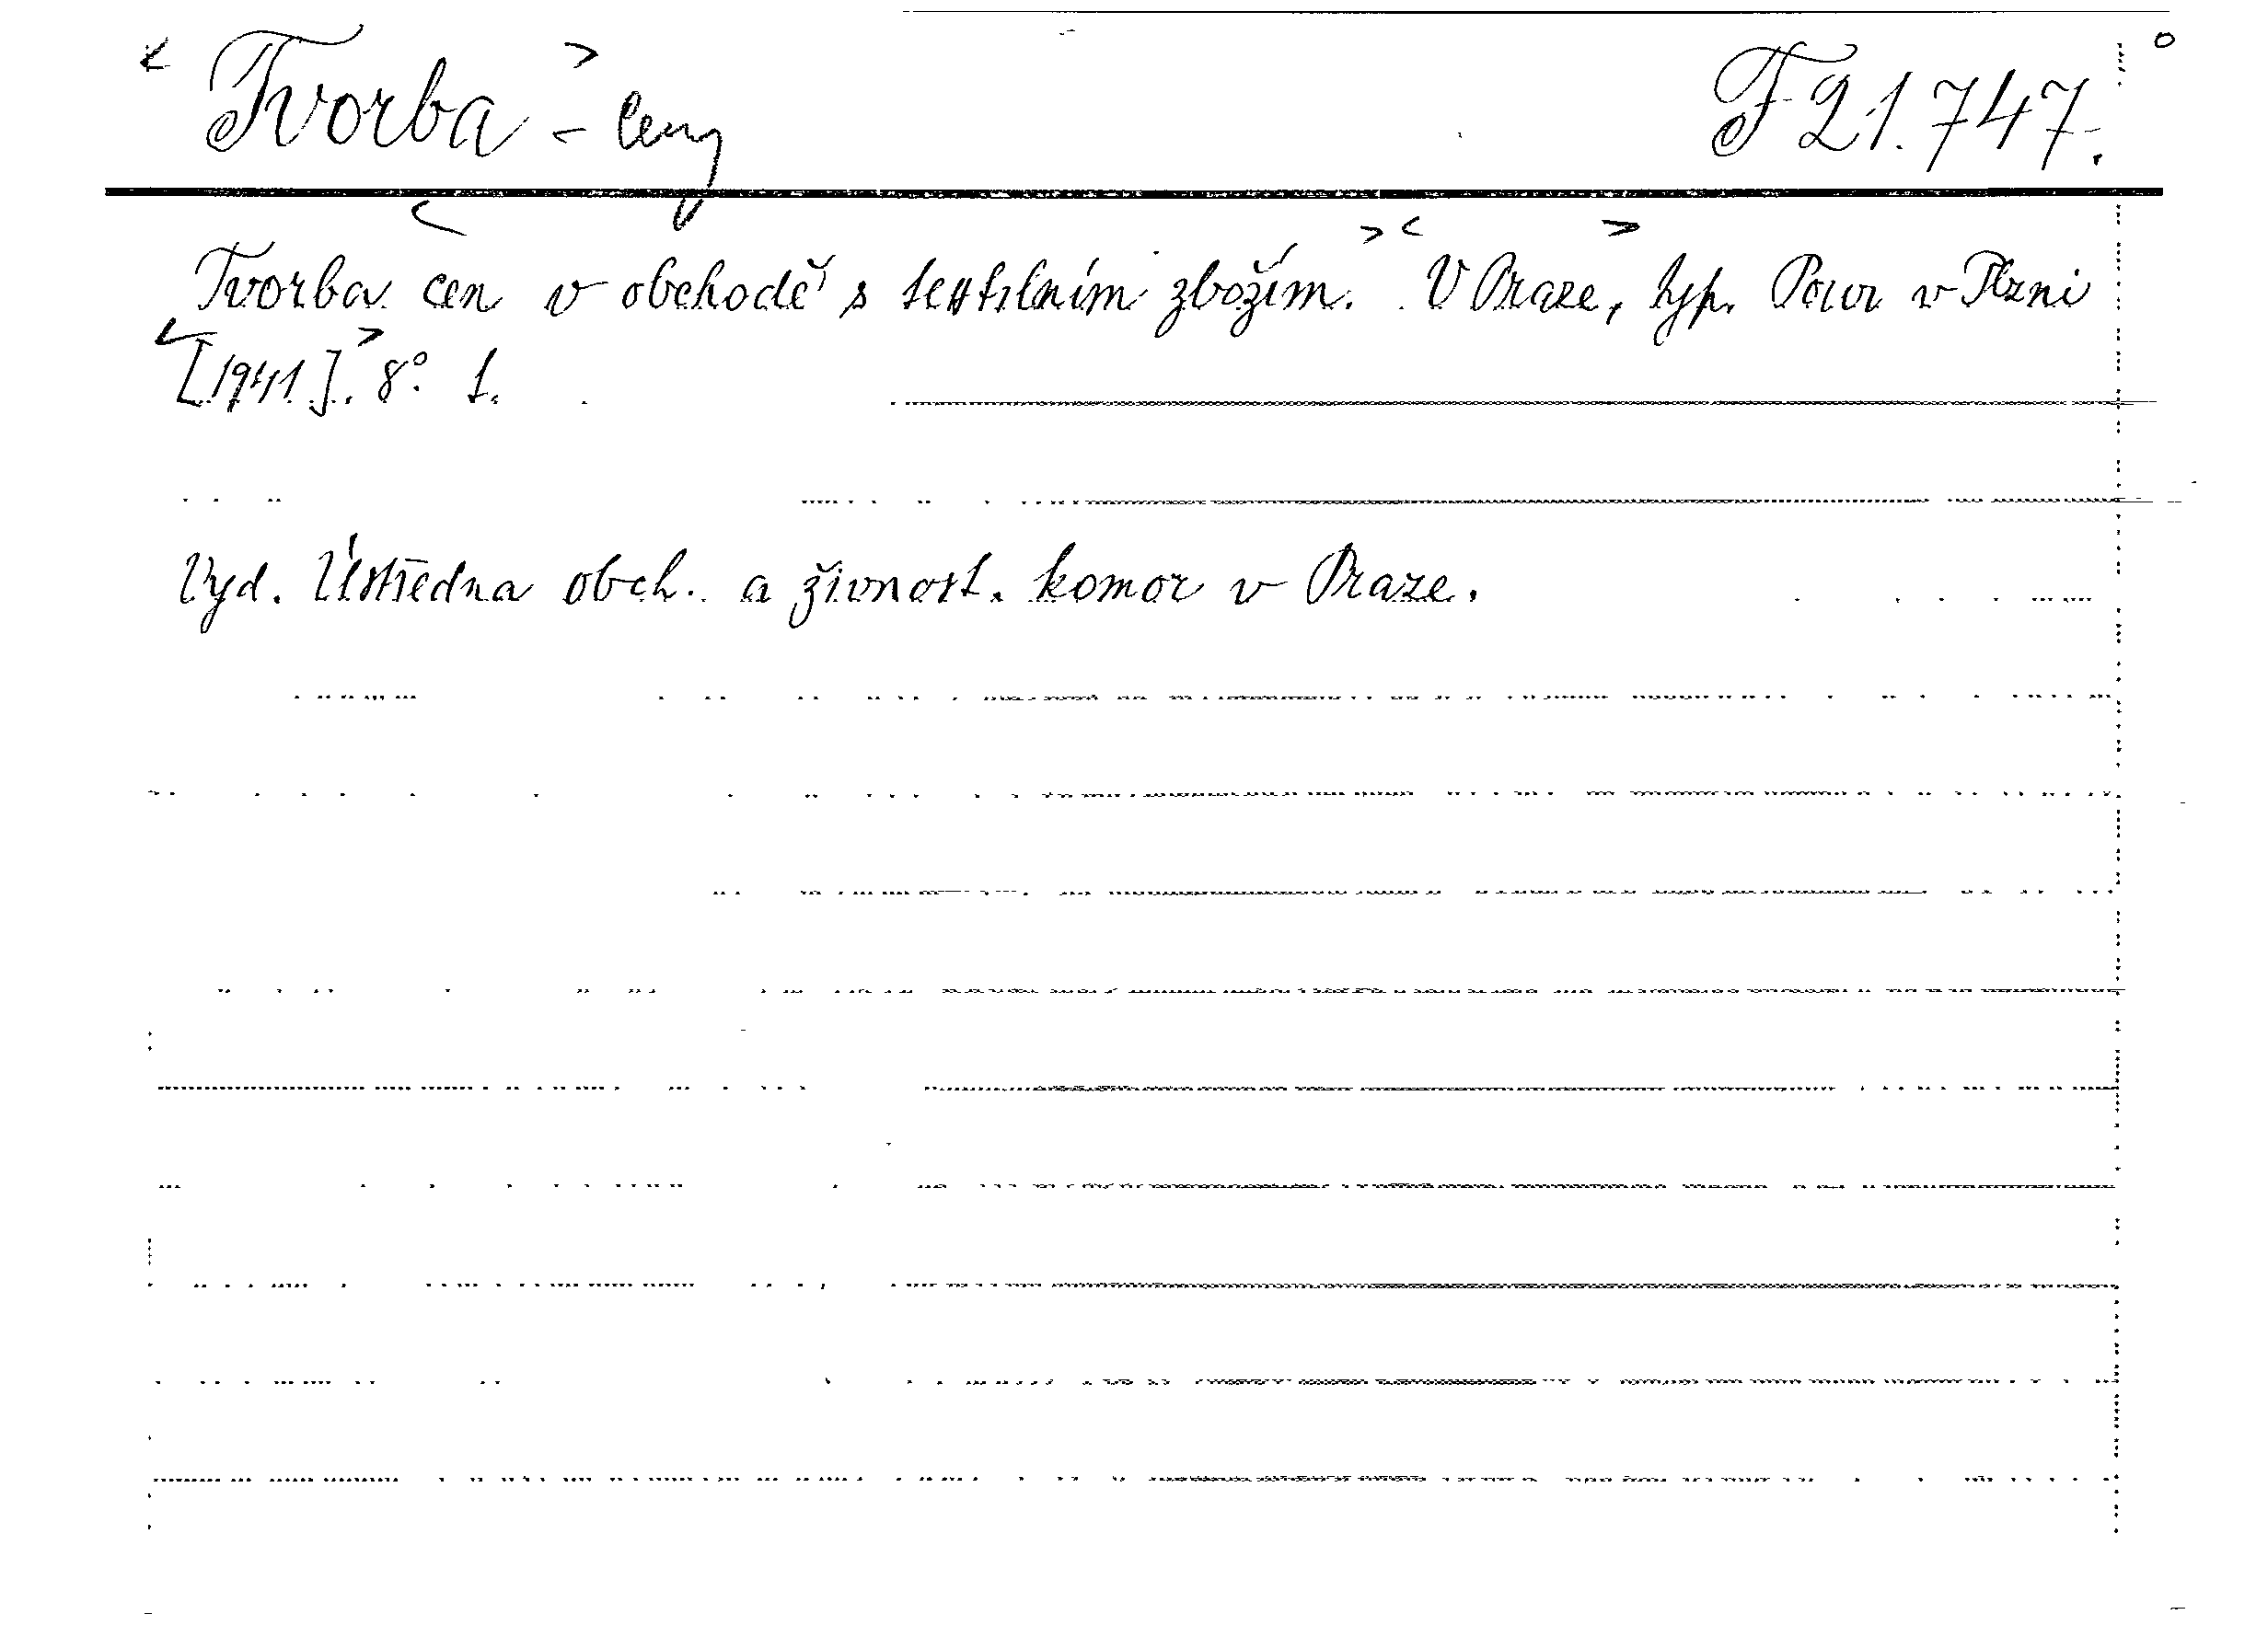 Tvorba - Ceny F 21.747.
Tvorba cen v obchodě s textilním zbožím. V Praze, typ. Pour v Plzni
[1941]. 8°. 1.
Vyd. Ústředna obch. a živnost. komor v Praze.